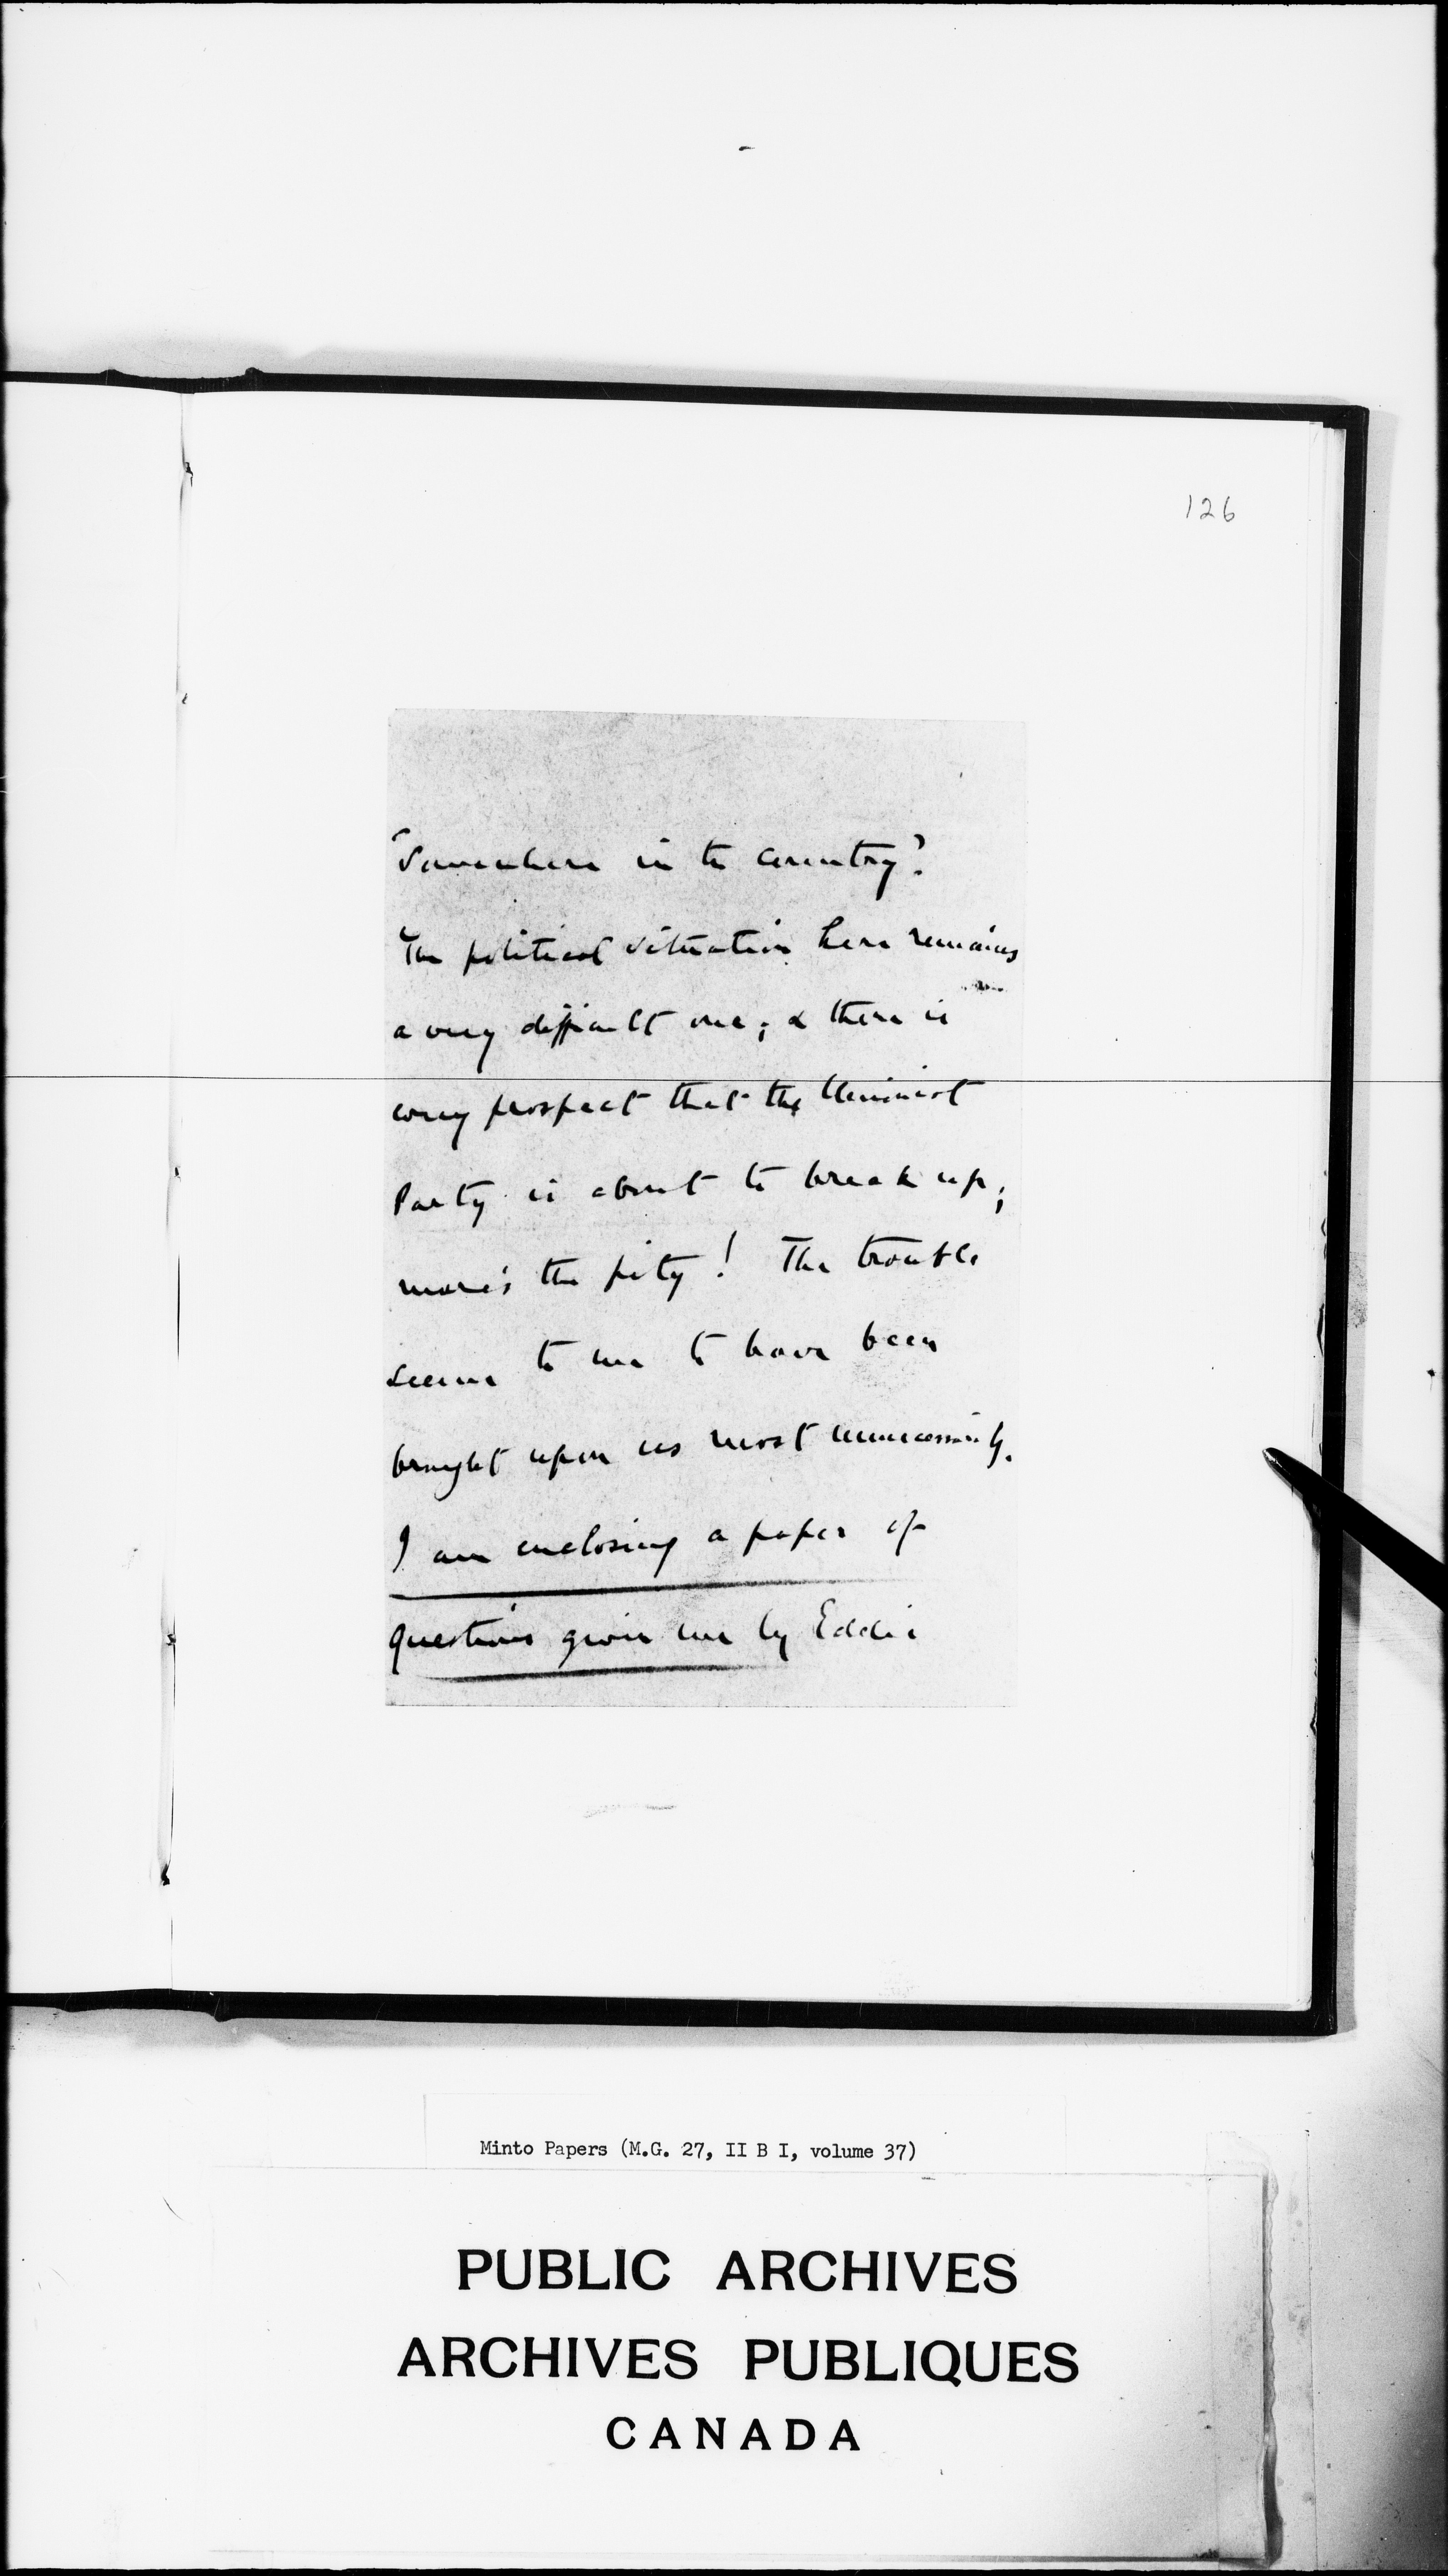 126
"Somewhere in the country"?
The political situation here remains
a very difficult one; & there is
every prospect that the Unionist
Party is about to break up;
more's the pity! The trouble
seems to me to have been
brought upon us most unnecessarily.
I am enclosing a paper of
questions given me by Eddie
Minto Papers (M.G. 27, II B I, volume 37)
PUBLIC ARCHIVES
ARCHIVES PUBLIQUES
CANADA